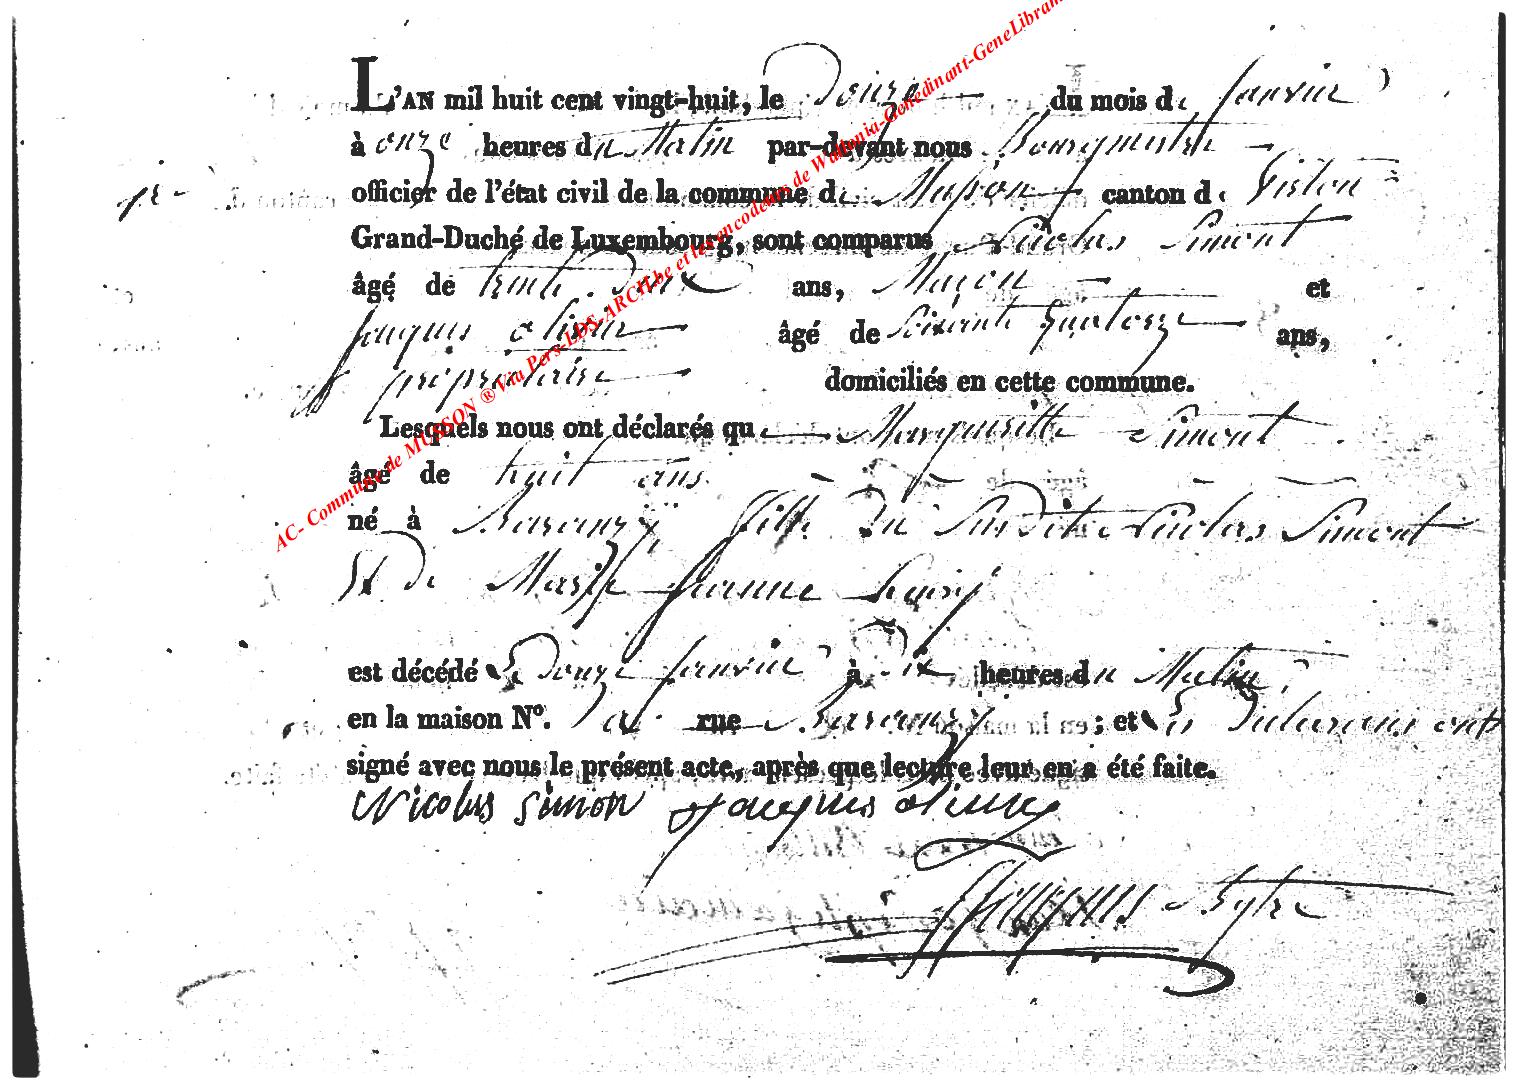 L'AN mil huit cent vingt-huit, le Douze du mois de Janvier
à onze heures du Matin par-devant nous Bourgmestre
officier de l'état civil de la commune de Musson canton de Virton
Grand-Duché de Luxembourg, sont comparus Nicolas Simont
âgé de trente Deux ans, Maçon et
Jacques âgé de Soixante Quatorze ans,
propriétaire domiciliés en cette commune.
Lesquels nous ont déclarés que Marguerite Simont
âgé de huit ans
né à Baranzÿ fille du Susdit Nicolas Simont
Et de Marie Jeanne
est décédé Le Douze Janvier à Dix heures du Matin
en la maison Nº. rue Baranzy ; et Les Déclarans ont
signé avec nous le présent acte, après que lecture leur en a été faite.
Nicolas Simon Jacques
AC- Commune de MUSSON ® Via Pers-LDS-ARCH.be et les encodeurs de Wallonia-Genedinant-GeneLibram